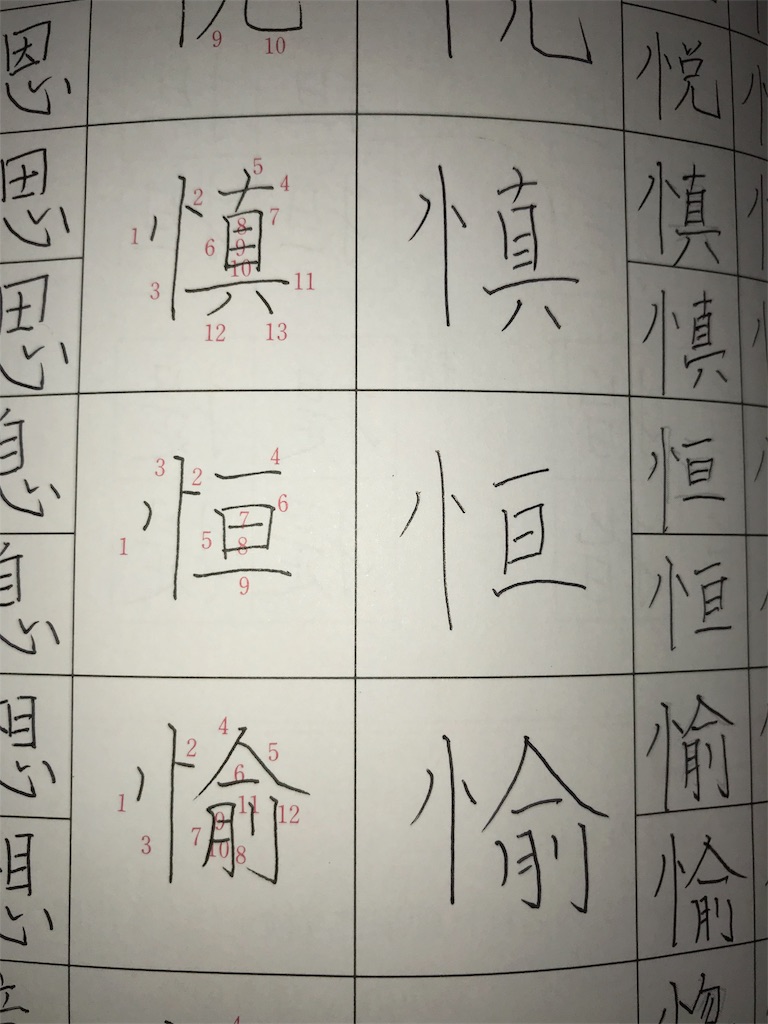 恩 9 10 悦
思 慎 1 2 3 4 5 6 7 8 9 10 11 12 13 慎 慎
思 慎
息 恒 1 2 3 4 5 6 7 8 9 恒 恒
息 恒
想 愉 1 2 3 4 5 6 7 8 9 10 11 12 愉 愉
想 愉